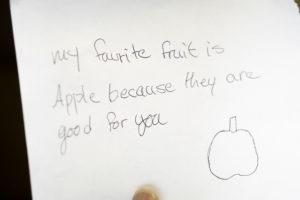 my faurite fruit is
Apple because they are
good for you